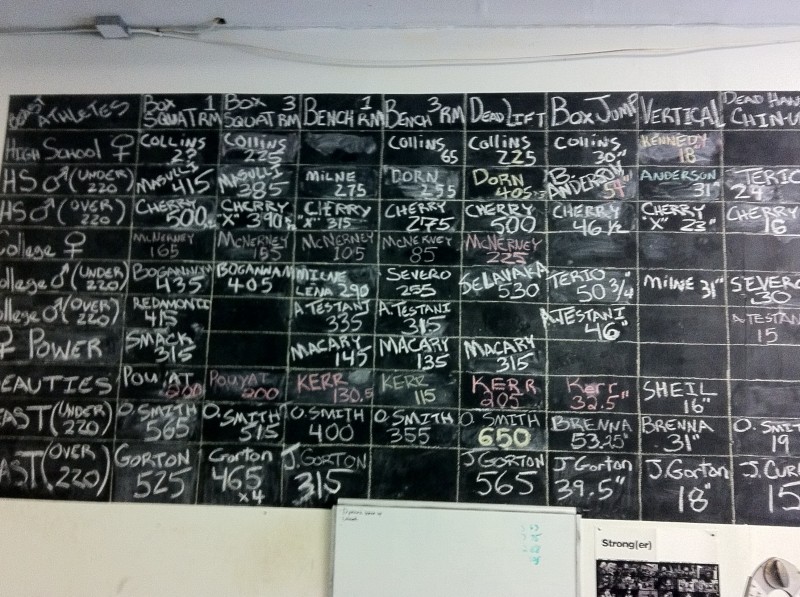 BEAST ATHLETES BOX 1 SQUAT RM BOX 3 SQUAT RM BENCH 1 RM BENCH 3 RM DEADLIFT BOX JUMP VERTICAL DEAD HAN CHIN-U
HIGH SCHOOL ♀ COLLINS COLLINS 225 COLLINS 65 COLLINS 225 COLLINS 30" KENNEDY 18
HS ♂ (UNDER 220) MASULLI 415 MASULLI 385 MILNE 275 DORN 255 DORN 405 B. ANDERSON 54" ANDERSON 31" TERIO 24
HS ♂ (OVER 220) CHERRY 500 CHERRY "X" 390 CHERRY "X" 315 CHERRY 275 CHERRY 500 CHERRY 46 1/2 CHERRY "X" 23" CHERRY 16
College ♀ MCNERNEY 165 MCNERNEY 155 MCNERNEY 105 MCNERNEY 85 MCNERNEY 225
ollege ♂ (UNDER 220) BOGANNAM 435 BOGANNAM 405 MILNE LENA 290 SEVERO 255 DELAVAKA 530 TERIO 50 3/4" MILNE 31" SEVERO 30
ollege ♂ (OVER 220) REDAMONTI 415 A.TESTANI 335 A.TESTANI 315 A.TESTANI 46" A.TESTAN 15
♀ POWER SMACK 315 MACARY 145 MACARY 135 MACARY 315
EAUTIES POUYAT 200 POUYAT 200 KERR 130.5 KERR 115 KERR 205 Kerr 32.5" SHEIL 16"
EAST (UNDER 220) O.SMITH 565 O.SMITH 515 O.SMITH 400 O.SMITH 355 O.SMITH 650 BRENNA 53.25" BRENNA 31" O.SMIT 19
AST (OVER 220) GORTON 525 Gorton 465 x4 J.GORTON 315 J GORTON 565 J Gorton 39.5" J.Gorton 18" J.CUR 15
Strong(er)